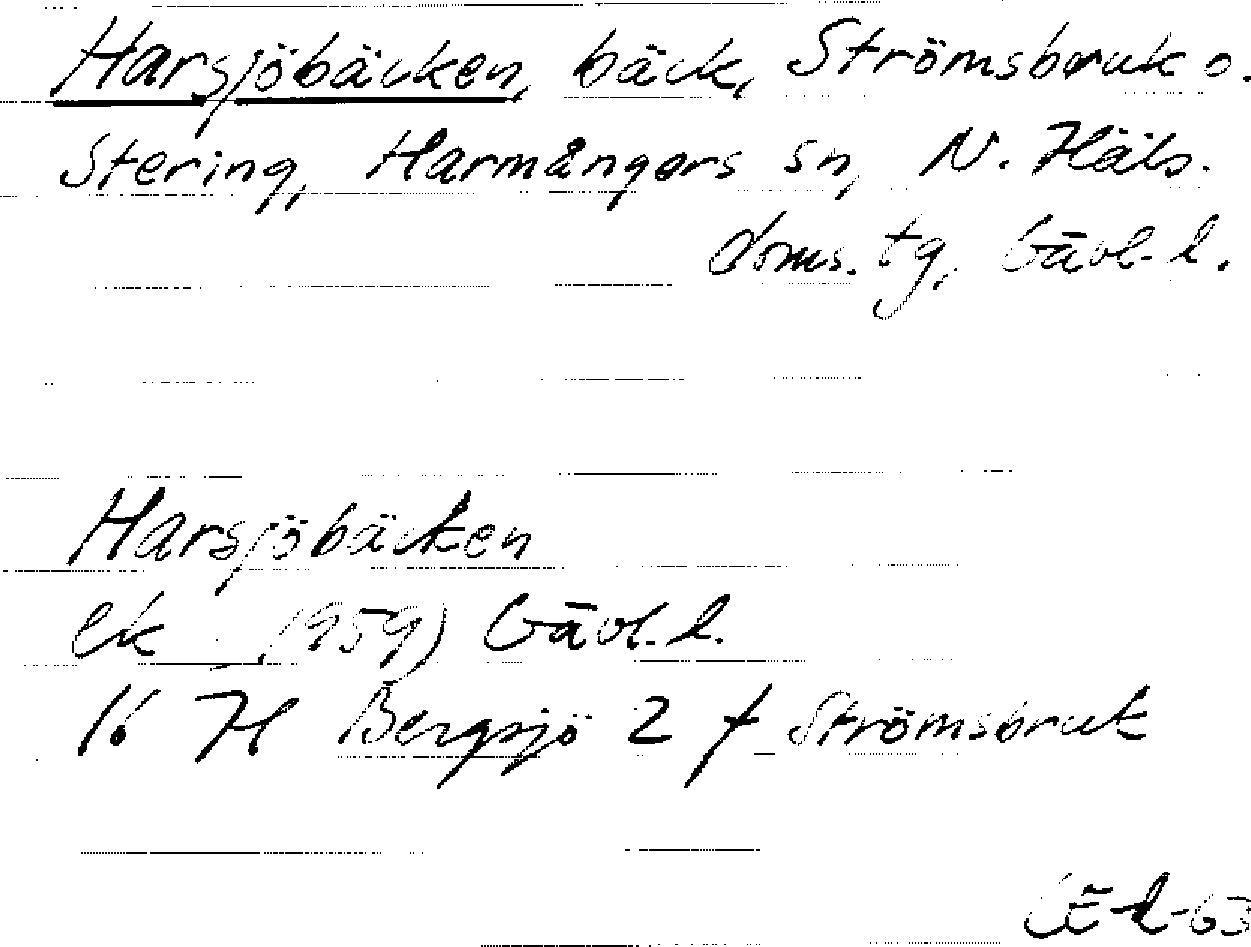 Harsjöbäcken, bäck, Strömsbruk o.
Stering, Harmångers sn, N. Häls.
doms. tg, Gävl. l.
Harsjöbäcken
ek (1959) Gävl. l.
16 H Bergsjö 2 f Strömsbruk